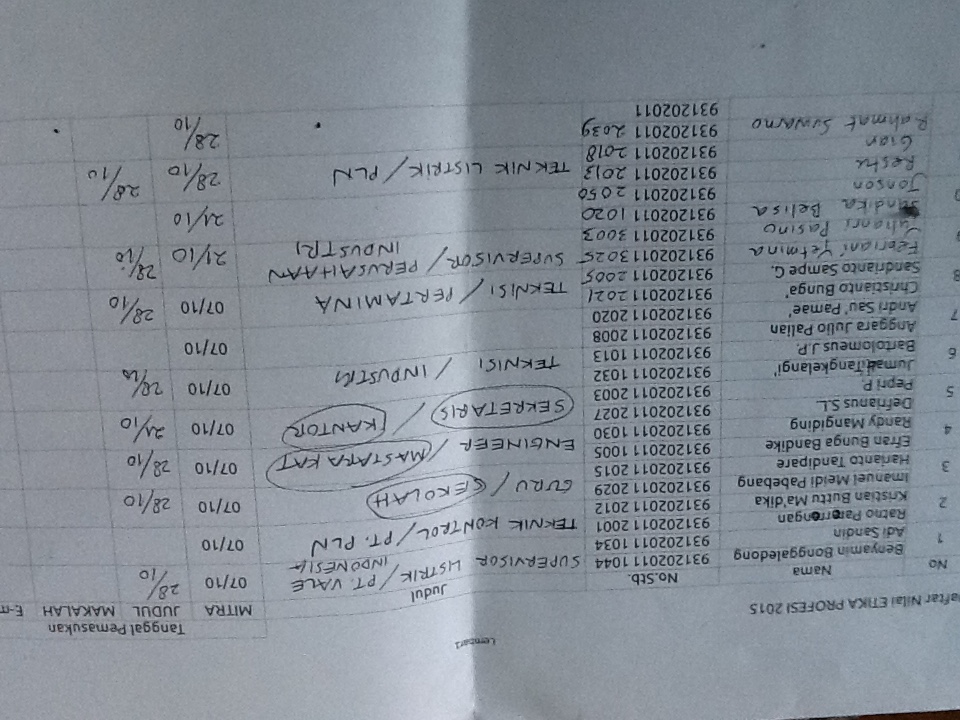 Lembar1
aftar Nilai ETIKA PROFESI 2015
Tanggal Pemasukan
No Nama No.Stb. Judul MITRA JUDUL MAKALAH E-m
Benyamin Bonggaledong 931202011 1044 SUPERVISOR LISTRIK / PT. VALE INDONESIA 07/10 28/10
1 Adi Sandin 931202011 1034
Ratno Parerrongan 931202011 2001 TEKNIK KONTROL / PT. PLN 07/10
2 Kristian Buttu Ma'dika 931202011 2012
Imanuel Meidi Pabebang 931202011 2029 GURU / SEKOLAH 07/10 28/10
3 Harianto Tandipare 931202011 2015
Efran Bunga Bandike 931202011 1005 ENGINEER / MASYARAKAT 07/10 28/10
4 Randy Mangiding 931202011 1030
Defrianus S.L. 931202011 2027 SEKRETARIS / KANTOR 07/10 21/10
5 Pepri P. 931202011 2003
Jumadi Tangkelangi' 931202011 1032 TEKNISI / INDUSTRI 07/10 28/10
6 Bartolomeus J.P. 931202011 1013
Anggara Julio Palian 931202011 2008 07/10
7 Andri Sau' Pamae' 931202011 2020
Christianto Bunga' 931202011 2021 TEKNISI / PERTAMINA 07/10 28/10
8 Sandrianto Sampe G. 931202011 2005
Febriani Yetmina 931202011 3025 SUPERVISOR / PERUSAHAAN INDUSTRI 21/10 28/10
9 Pasino 931202011 3003
Sandika Belisa 931202011 1020 21/10
Jonson 931202011 2050
Reshi 931202011 2013 TEKNIK LISTRIK / PLN 28/10 28/10
Gian 931202011 2018
Rahmat Suwarno 931202011 2039 28/10
931202011